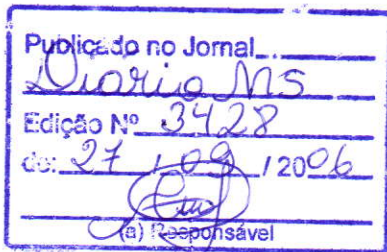 Publicado no Jornal
Diario MS
Edição Nº 3428
de: 27 / 09 / 2006
(a) Responsável